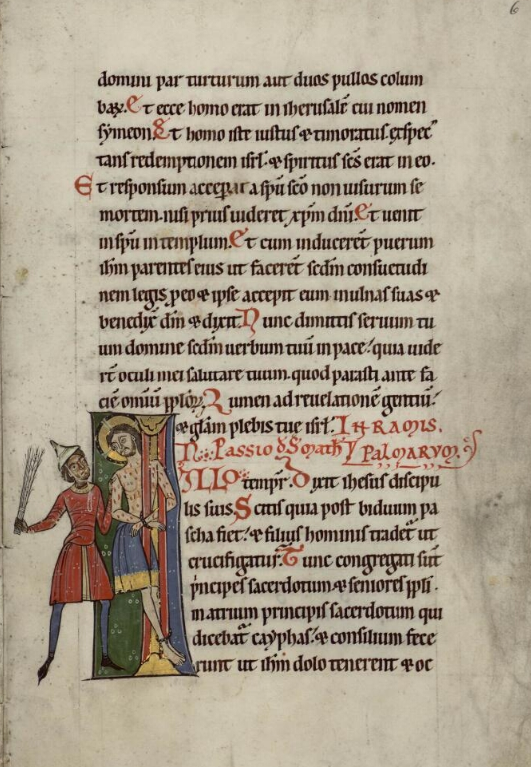 6
domini par turturum aut duos pullos colum
baꝝ. Et ecce homo erat in iherusalē cui nomen
symeon. Et homo iste iustus & timoratus. exspec
tans redemptionem isrl. & spiritus scs̄ erat in eo.
Et responsum acceperat a spū scō non uisurum se
mortem. nisi prius uideret xpm̄ dnī. Et uenit
in spū in templum. Et cum inducerēt puerum
ihm̄ parentes eius ut facerēt scdm̄ consuetudi
nem legis ꝓ eo & ipse accepit eum in ulnas suas &
benedixē dm̄ & dixit. Nunc dimittis seruum tu
um domine scdm̄ uerbum tuū in pace. quia uide
rt̄ oculi mei salutare tuum. quod parasti ante fa
ciē omiū pplor̄. Lumen ad reuelationē gentiū.
& glām plebis tue isrl. IN RAMIS
Passio Palmarum
ILLo tempr̄. Dixit ihesus discipu
lis suis. Scitis quia post biduum pa
scha fiet. & filius hominis tradet̄ ut
crucifigatur. Tunc congregati sūt
principes sacerdotum & seniores ppli.
in atrium principis sacerdotum qui
dicebat̄ cayphas. & consilium fece
runt ut ihm̄ dolo tenerent & oc